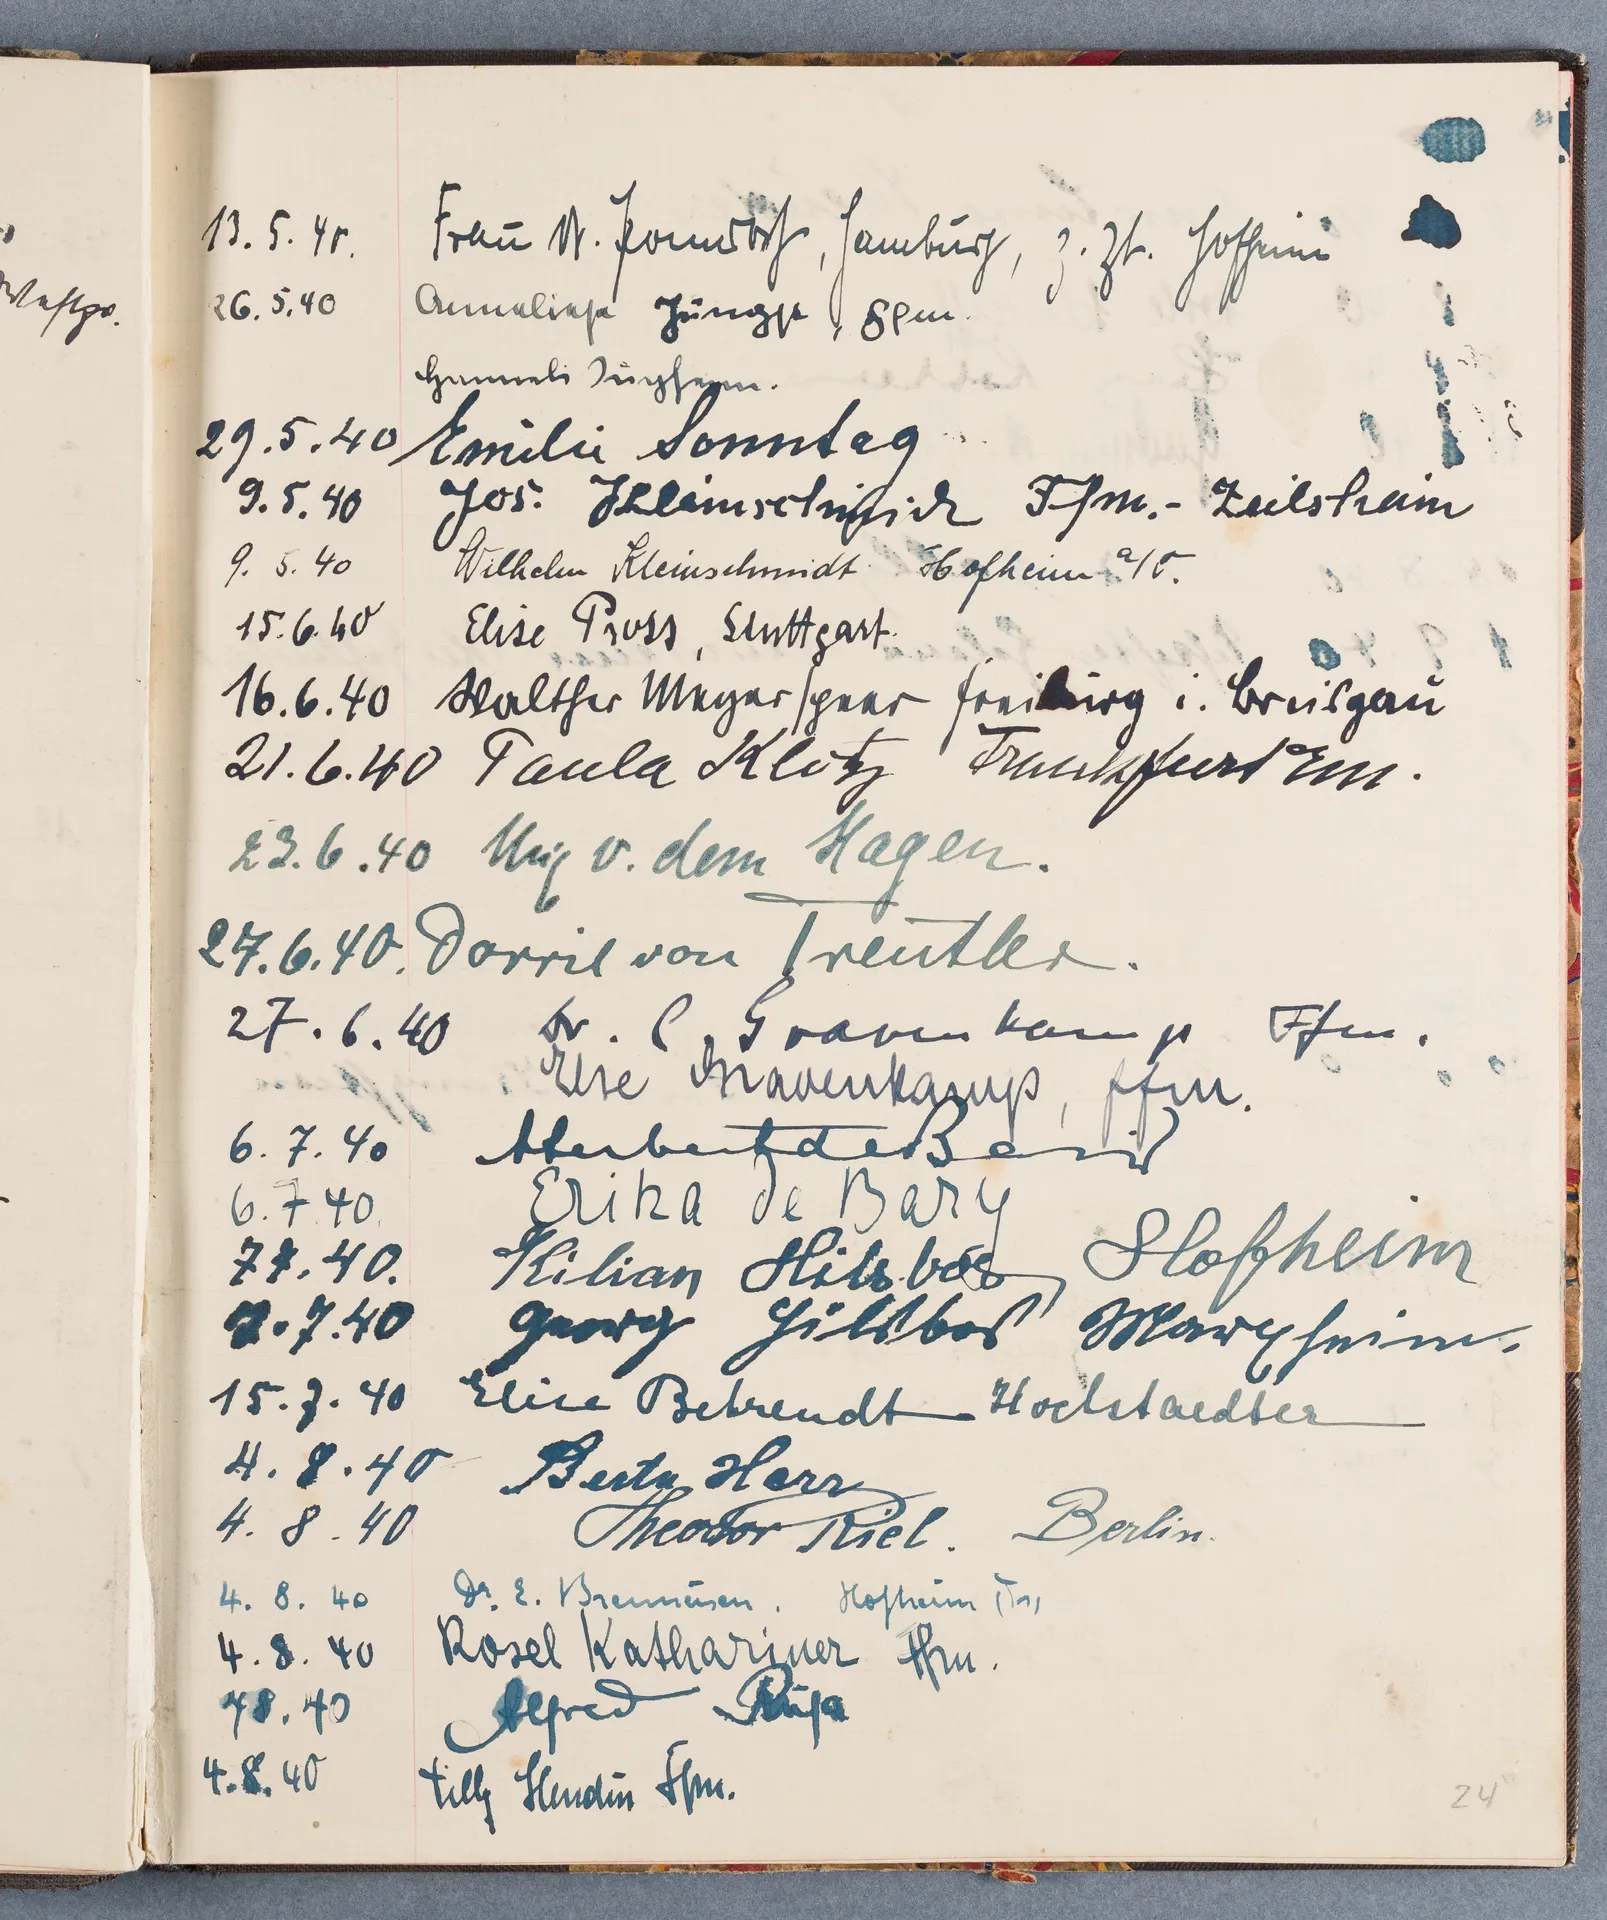 13.5.40. Frau Hamburg, z. Zt. Hofheim
26.5.40 Anneliese Ffm.
Hanneli
29.5.40 Emilie Sonntag
9.5.40 Jos. Kleinschmidt Ffm.- Zeilsheim
9.5.40 Wilhelm Kleinschmidt Hofheim a/T.
15.6.40 Elise Pross, Stuttgart.
16.6.40 Walther Meyerspeer Freiburg i. Breisgau
21.6.40 Paula Klotz Frankfurt
23.6.40 v. dem Hagen.
27.6.40. Dorril von Treutler.
27.6.40 Dr. C. Gravenkamp Ffm.
Else Gravenkamp, Ffm.
6.7.40 Herbert de Bary
6.7.40 Erika de Bary
7.7.40. Kilian Hilsbos, Hofheim
7.7.40 Georg Hilsbos Marxheim.
15.7.40 Elise Behrendt-Hochstaedter
4.8.40 Berta Herr
4.8.40 Theodor Kiel. Berlin.
4.8.40 Dr. E. Hofheim (Ts)
4.8.40 Rosel Kathariner Ffm.
4 8.40 Alfred
4.8.40 Tilly Ffm.
24